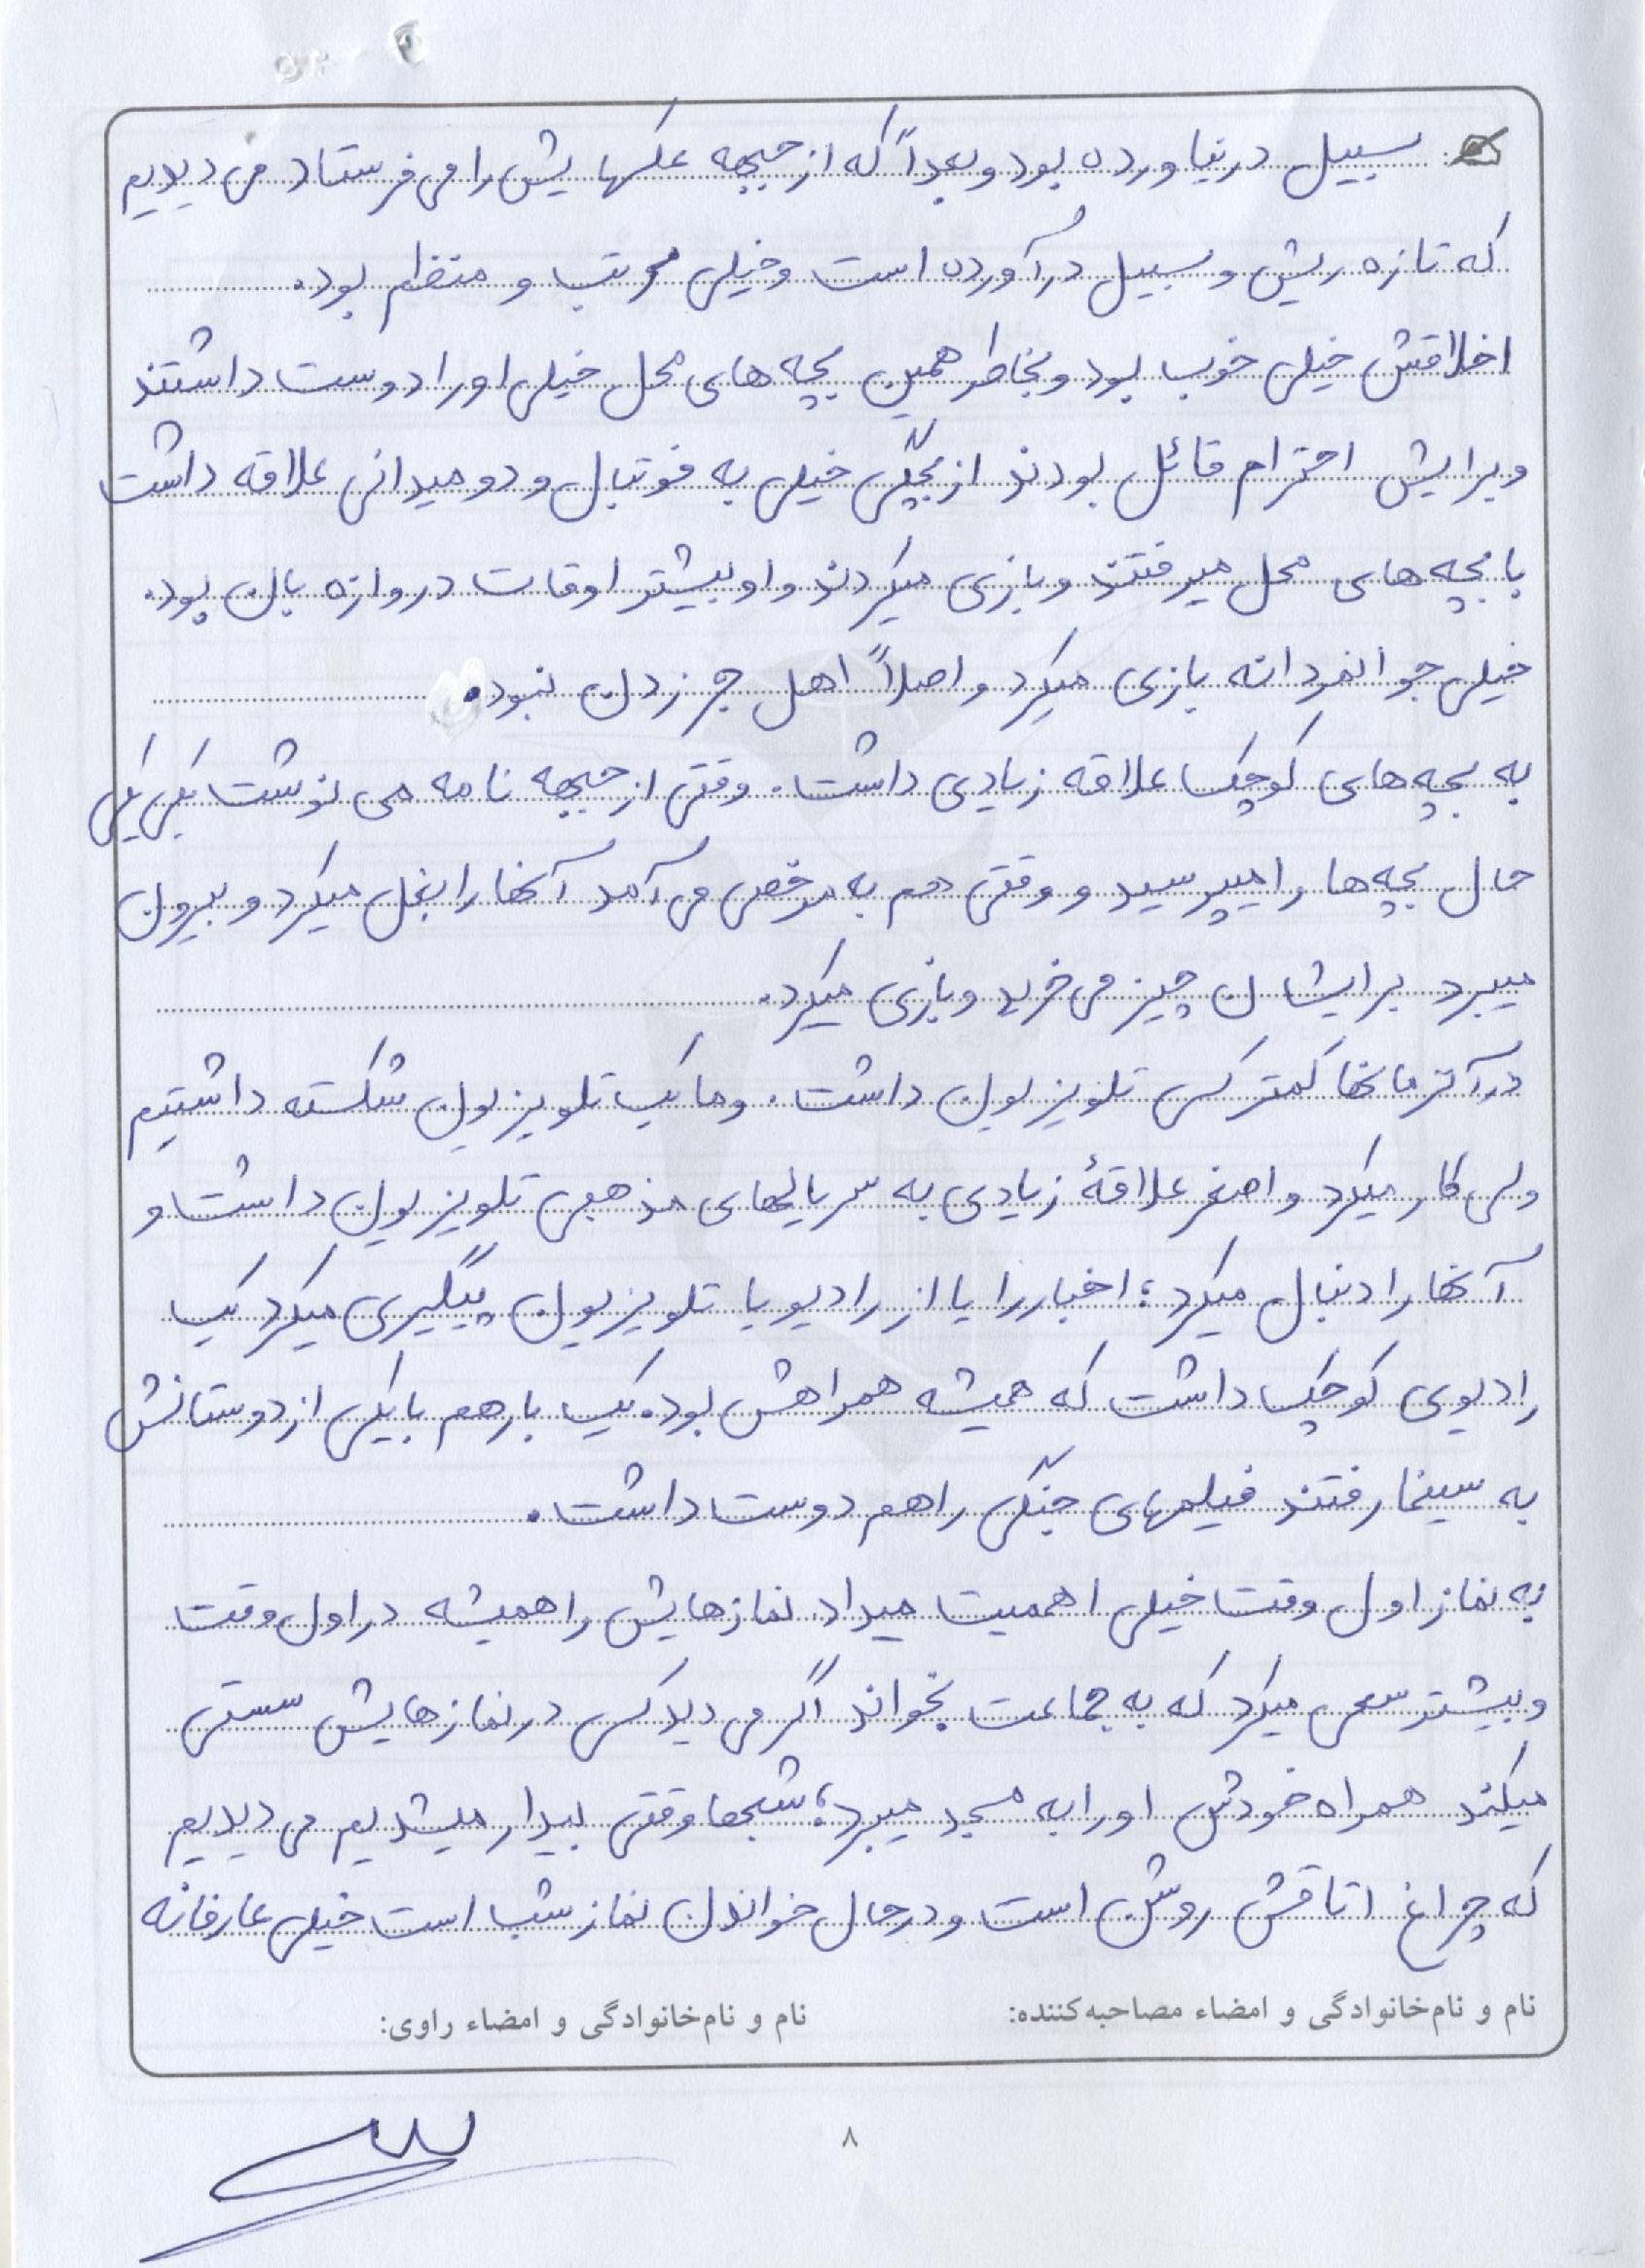 سبیل درنیاورده بود و بعداً که از جبهه عکسهایش را می فرستاد می دیدیم
که تازه ریش و سبیل درآورده است و خیلی مرتب و منظم بود.
اخلاقش خیلی خوب بود و بخاطر همین بچه های محل خیلی او را دوست داشتند
و برایش احترام قائل بودند از بچگی خیلی به فوتبال و دو میدانی علاقه داشت
با بچه های محل میرفتند و بازی میکردند و او بیشتر اوقات دروازه بان بود.
خیلی جوانمردانه بازی میکرد و اصلاً اهل جر زدن نبود.
به بچه های کوچک علاقه زیادی داشت. وقتی از جبهه نامه می نوشت یکی یکی
حال بچه ها را میپرسید و وقتی هم به مرخصی می آمد آنها را بغل میکرد و بیرون
میبرد برایشان چیز می خرید و بازی میکرد.
در آنزمانها کمتر کسی تلویزیون داشت. و ما یک تلویزیون شکسته داشتیم
ولی کار میکرد و اصغر علاقۀ زیادی به سریالهای مذهبی تلویزیون داشت و
آنها را دنبال میکرد؛ اخبار را یا از رادیو یا تلویزیون پیگیری میکرد یک
رادیوی کوچک داشت که همیشه همراهش بود. یک بار هم با یکی از دوستانش
به سینما رفتند فیلمهای جنگی را هم دوست داشت.
به نماز اول وقت خیلی اهمیت میداد. نمازهایش را همیشه در اول وقت
و بیشتر سعی میکرد که به جماعت بخواند اگر می دید کسی در نمازهایش سستی
میکند همراه خودش او را به مسجد میبرد؛ شبها وقتی بیدار میشدیم می دیدیم
که چراغ اتاقش روشن است و در حال خواندن نماز شب است خیلی عارفانه
نام و نام‌خانوادگی و امضاء مصاحبه‌کننده: نام و نام‌خانوادگی و امضاء راوی:
۸